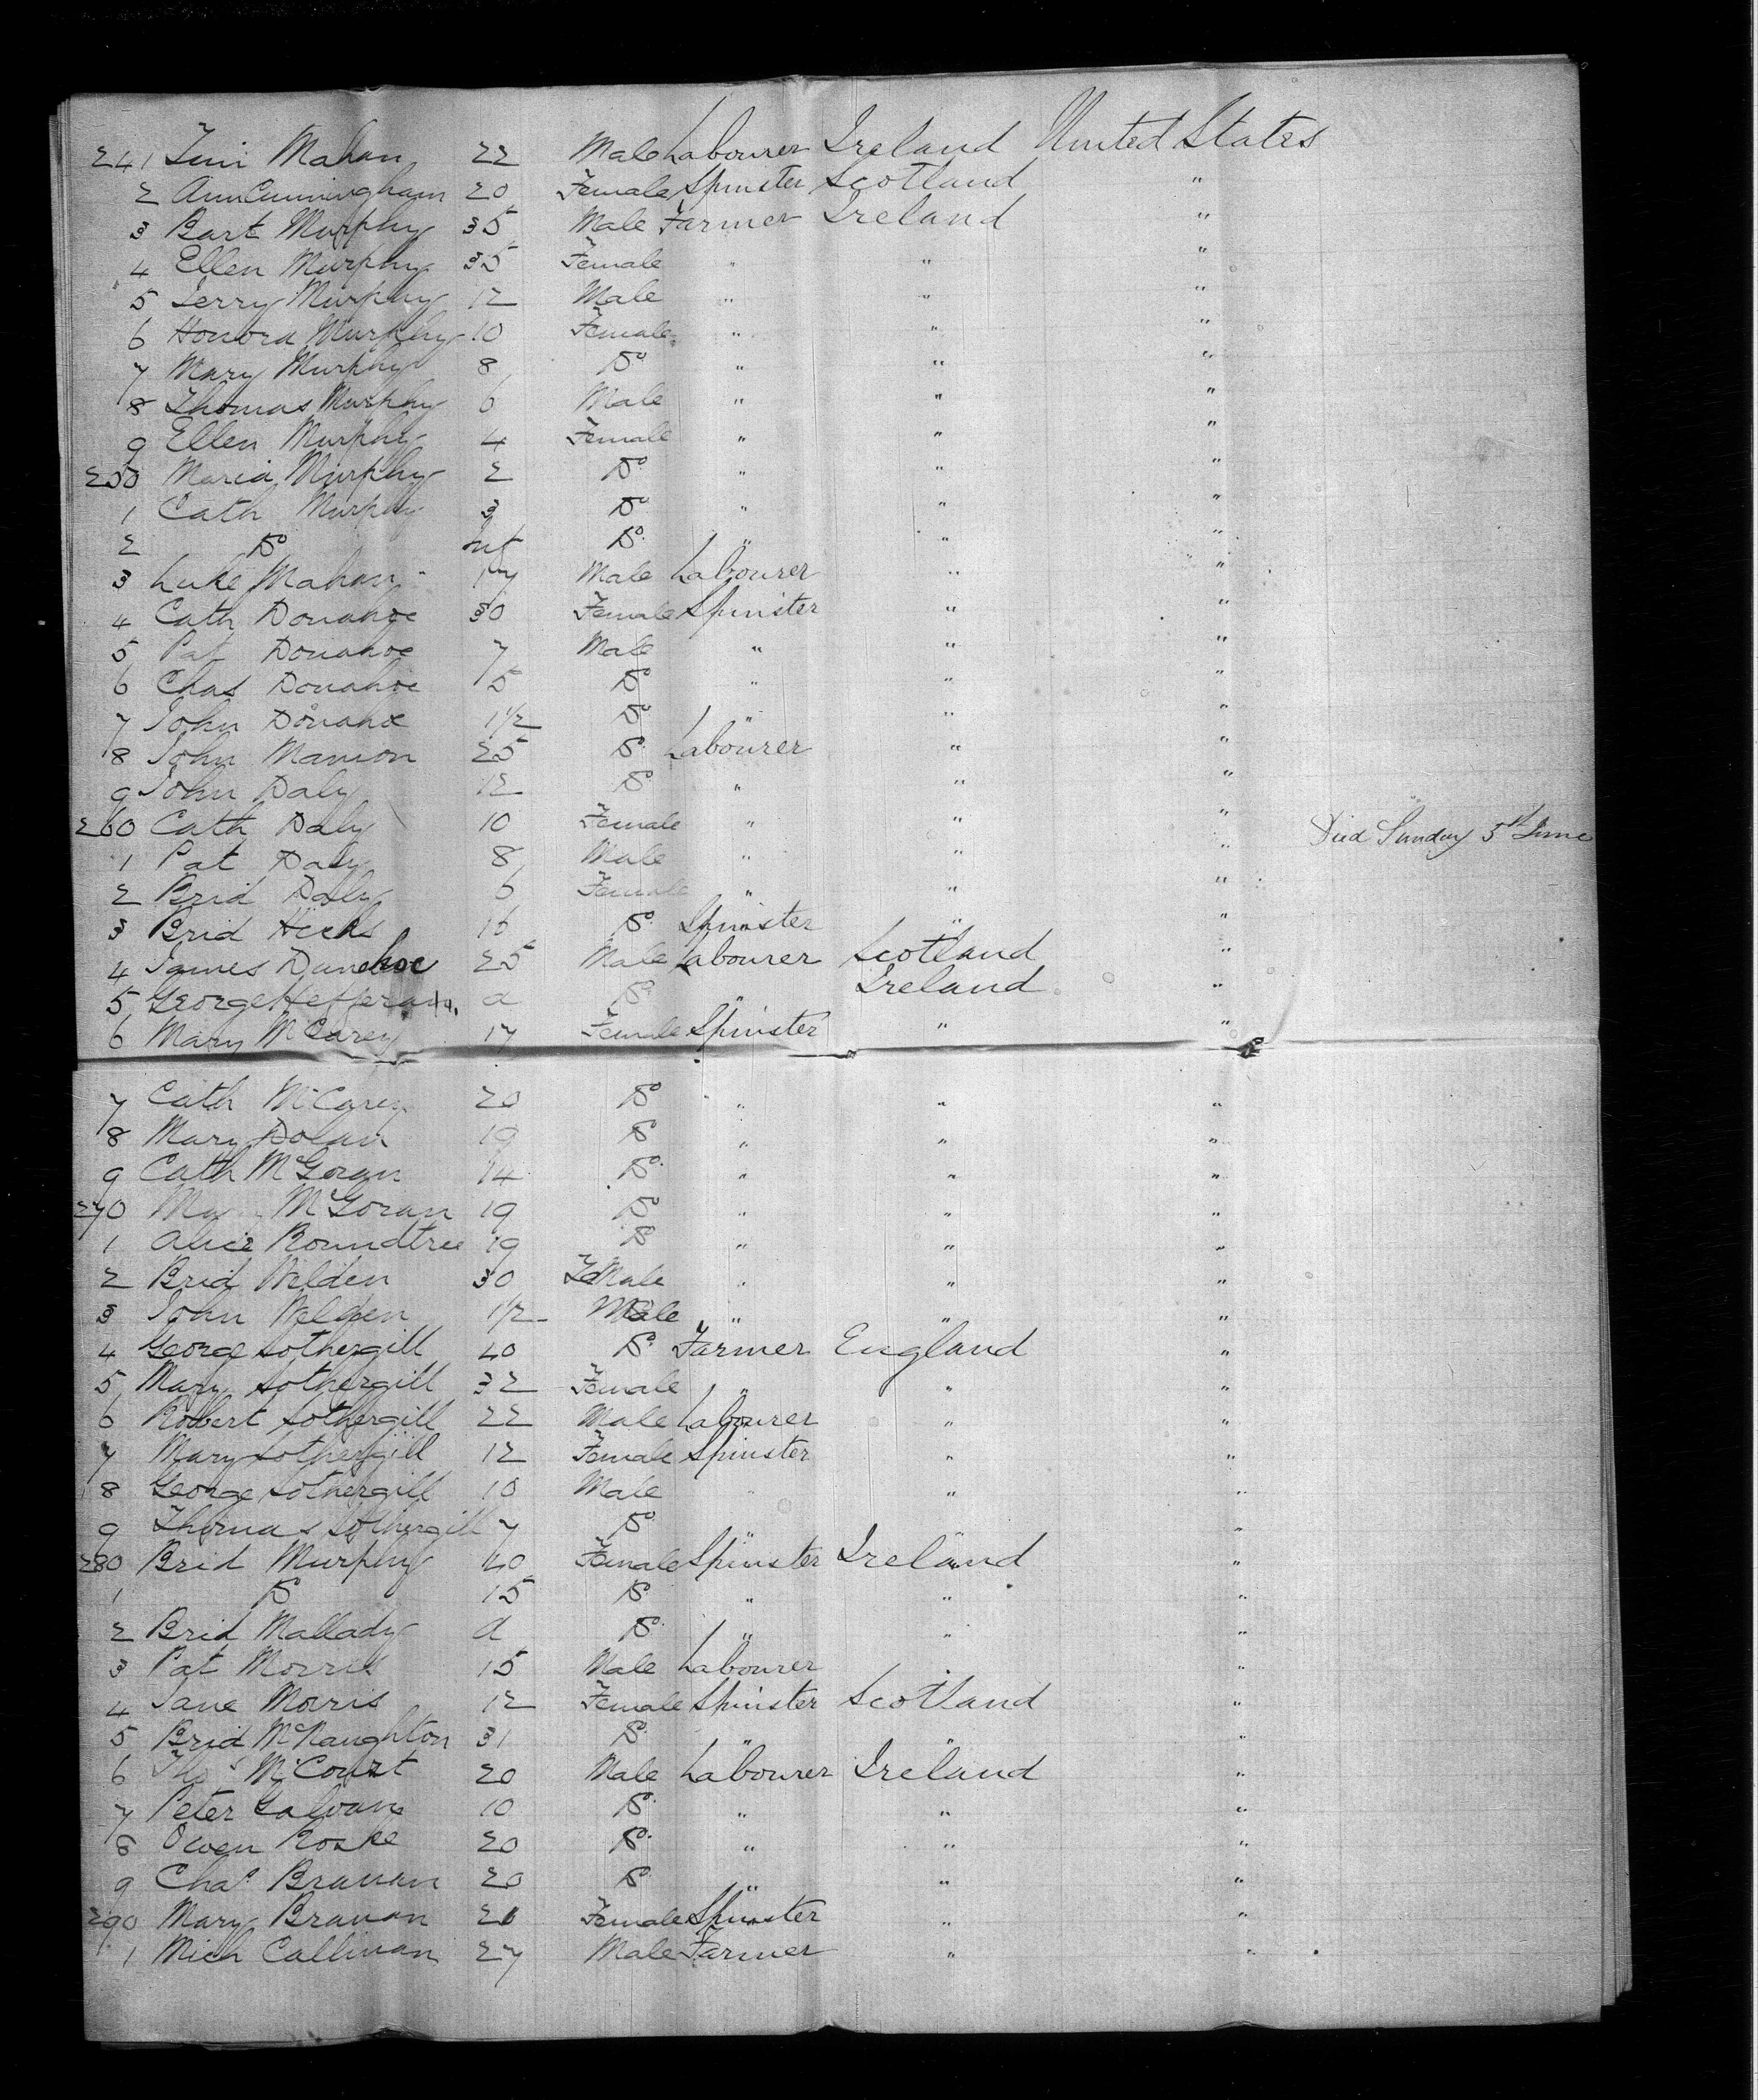 241 Tim Mahan 22 Male Labourer Ireland United States
2 Ann Cunningham 20 Female Spinster Scotland "
3 Bart Murphy 35 Male Farmer Ireland "
4 Ellen Murphy 35 Female " " "
5 Jerry Murphy 12 Male " " "
6 Honora Murphy 10 Female " " "
7 Mary Murphy 8 Do " " "
8 Thomas Murphy 6 Male " " "
9 Ellen Murphy 4 Female " " "
250 Maria Murphy 2 Do " " "
1 Cath Murphy 3 Do " " "
2 Do Inft Do " " "
3 Luke Mahan 17 Male Labourer " "
4 Cath Donahoe 30 Female Spinster " "
5 Pat Donahoe 7 Male " " "
6 Chas Donahoe 5 Do " " "
7 John Donahoe 1½ Do " " "
8 John Manion 25 Do Labourer " "
9 John Daly 12 Do " " "
260 Cath Daly 10 Female " " " Died Sunday 5th June
1 Pat Daly 8 Male " " "
2 Brid Daly 6 Female " " "
3 Brid Hicks 16 Do Spinster " "
4 James Dunehoe 25 Male Labourer Scotland "
5 George Hefferan a Do " Ireland "
6 Mary McCarey 17 Female Spinster " "
7 Cath McCarey 20 Do " " "
8 Mary Dolan 19 Do " " "
9 Cath McGoran 14 Do " " "
270 McGoran 19 Do " " "
1 Alice Roundtree 19 Do " " "
2 Brid Welden 30 FeMale " " "
3 John Welden 1½ Male " " "
4 George Sothergill 40 Do Farmer England "
5 Mary Sothergill 32 Female " " "
6 Robert Sothergill 22 Male Labourer " "
7 Mary Sothergill 12 Female Spinster " "
8 George Sothergill 10 Male " " "
9 Thomas Sothergill 7 Do " " "
280 Brid Murphy 40 Female Spinster Ireland "
1 Do 15 Do " " "
2 Brid Mallady a Do " " "
3 Pat Morris 15 Male Labourer " "
4 Jane Morris 12 Female Spinster Scotland "
5 Brid McNaughton 31 Do " " "
6 Thos McCourt 20 Male Labourer Ireland "
7 Peter Galvane 10 Do " " "
8 Owen Roske 20 Do " " "
9 Chas Branan 20 Do " " "
290 Mary Branan 20 Female Spinster " "
1 Mich Callinan 27 Male Farmer " "